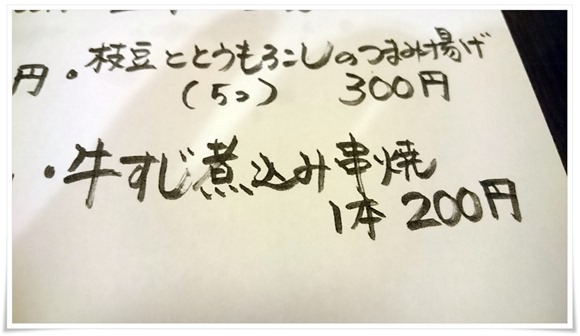 ・枝豆ととうもろこしのつまみ揚げ
円
(5コ) 300円
・牛すじ煮込み串焼
1本 200円